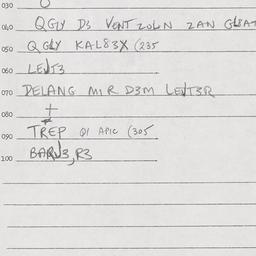 030
040 QGLY D3 VENT ZOLN ZAN
050 Q GLY KAL83X (235
060 LEVT3
070 DELANG MIR D3M LEVT3R
080 +
090 TREP QI APIC (305
100 BARV3, R3